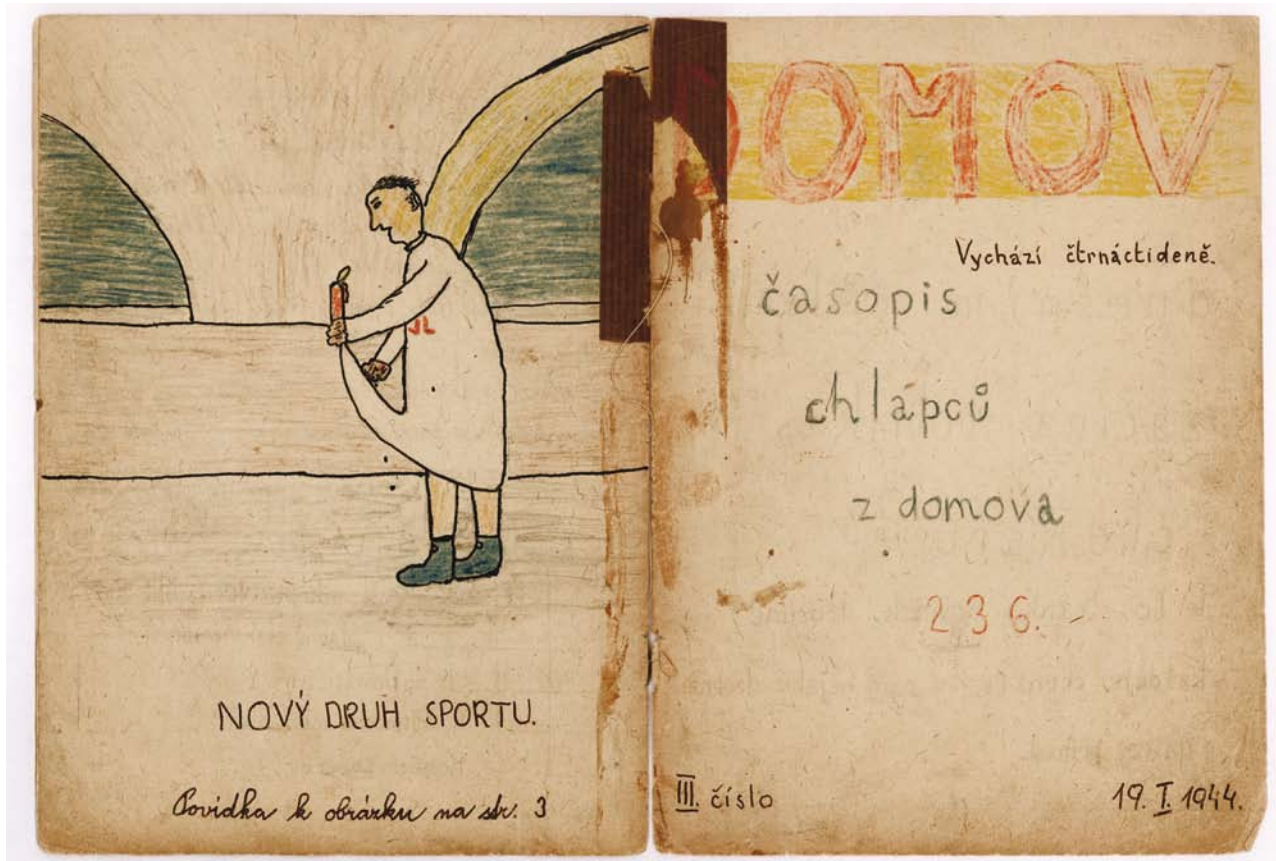 JL
NOVÝ DRUH SPORTU.
Povídka k obrázku na str. 3
DOMOV
Vychází čtrnáctideně.
časopis
chlapců
z domova
236.
III. číslo
19. I. 1944.